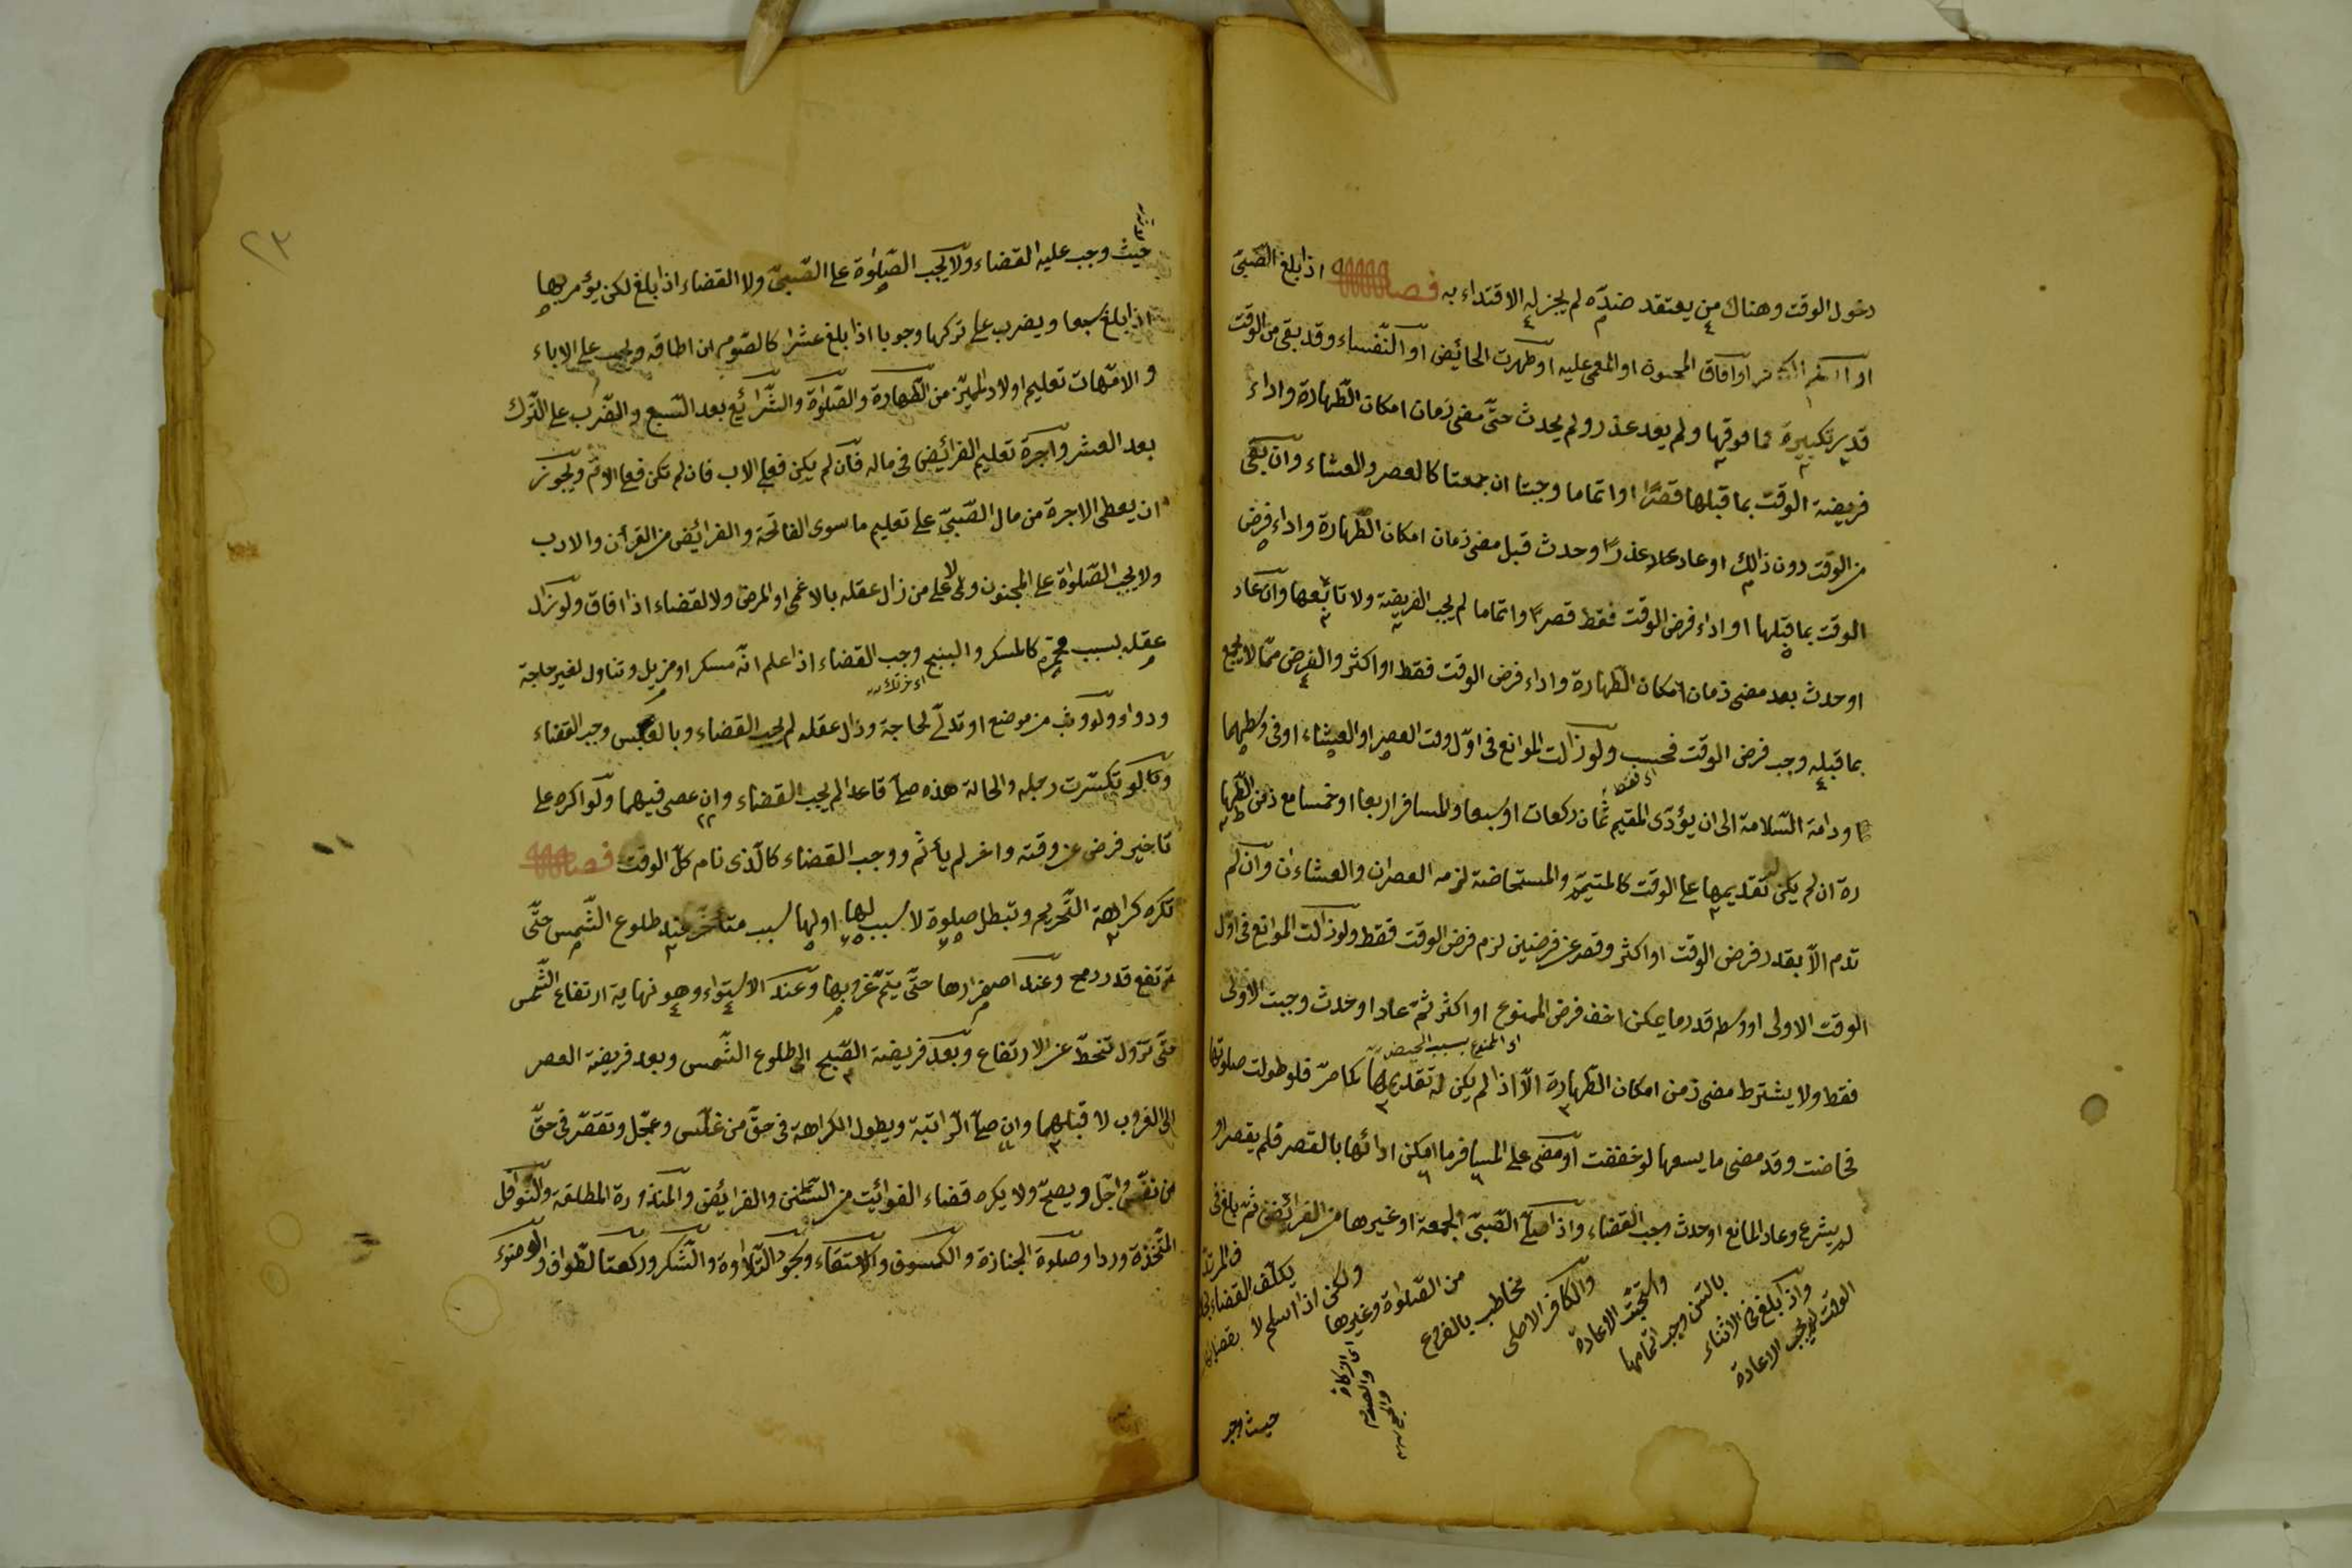 دخول الوقت وهناك من يعتقد ضدّه لم يجز له الاقتداء به فصل اذا بلغ الصّبيّ
او افاق المجنون او المغمى عليه او طهرت الحائض او النّفساء وقد بقي من الوقت
قدر تكبيرة فما فوقها ولم يعد عذر ولم يحدث حتّى مضى زمان امكان الطّهارة واداء
فريضة الوقت بما قبلها قصرًا او اتماما وجبتا ان جمعتا كالعصر والعشاء وان بقي
من الوقت دون ذالك او عاد عذر وحدث قبل مضى زمان امكان الطّهارة واداء فرض
الوقت بما قبلها او اداء فرض الوقت فقط قصرًا واتماما لم يجب الفريضة ولا تابعها وان عاد
او حدث بعد مضى زمان امكان الطّهارة واداء فرض الوقت فقط او اكثر والفرض ممّا لا يجمع
بما قبله وجب فرض الوقت فحسب ولو زالت الموانع في اوّل وقت العصر او العشاء او في وسطهما
اى فقط
ودامة السّلامة الى ان يؤدّى المقيم ثمان ركعات او سبعا والمسافر اربعا او خمسا مع زمن الطّها
رة ان لم يكن تقديمها على الوقت كالمتيمّم والمستحاضة لزمه العصران والعشاءان وان لم
تدم الّا بقدر فرض الوقت او اكثر وقصر عن فرضين لزم فرض الوقت فقط ولو زالت الموانع في اوّل
الوقت الاولى او وسطه قدر ما يمكن اخف فرض الممنوع او اكثر ثمّ عاد او حدث وجبت الاولى
اى الممنوع بسبب الحيض
فقط ولا يشترط مضى زمن امكان الطّهارة الّا اذا لم يكن له تقديمها كما مرّ فلو طولت صلوتها
فحاضت وقد مضى ما يسعها لو خففت او مضى على المسافر ما امكن ادائها بالقصر فلم يقصر او
لم يشرع وعاد المانع او حدث وجب القضاء واذا صلّى الصّبيّ الجمعة او غيرها من الفرائض ثمّ بلغ في
الوقت لم يجب الاعادة
واذا بلغ في الاثناء
بالسّن وجب اتمامها
واستحبّت الاعادة
والكافر الاصلى
مخاطب بالفروع
من الصّلوة وغيرها
اى الزكاة والصوم والحج
ولكن اذا اسلم لا
يكلّف القضاء
حيث وجب
٢٣
حيث وجب عليه القضاء ولا يجب الصّلوة على الصّبيّ ولا القضاء اذا بلغ لكن يؤمر بها
اذا بلغ سبعا ويضرب على تركها وجوبا اذا بلغ عشرا كالصّوم ان اطاقه ويجب على الاباء
والامّهات تعليم اولاد المميّز من الطّهارة والصّلوة والشّرائع بعد السّبع والضّرب على التّرك
بعد العشر واجرة تعليم الفرائض في ماله فان لم يكن فعلى الاب فان لم تكن فعلى الامّ ويجوز
ان يعطى الاجرة من مال الصّبيّ على تعليم ما سوى الفاتحة والفرائض من القرآن والادب
ولا يجب الصّلواة على المجنون ولا على من زال عقله بالاغمى او المرض ولا القضاء اذا افاق ولو زال
عقله بسبب محرّم كالمسكر والبنج وجب القضاء اذا علم انّه مسكر او مزيل وتناول لغير حاجة
ودواء ولو وثب من موضع او تدلّى لحاجة وزال عقله لم يجب القضاء وبالعكس وجب القضاء
ولو تكسّرت رجله والحالة هذه صلّى قاعدا لم يجب القضاء وان عصى فيهما ولو اكره على
تاخير فرض عن وقته واغر لم يأثم ووجب القضاء كالّذى نام كلّ الوقت فصل
تكره كراهة التّحريم وتبطل صلوة لا سبب لها او لها سبب متأخّر عند طلوع الشّمس حتّى
ترتفع قدر رمح وعند اصفرارها حتّى يتمّ غروبها وعند الاستواء وهو نهاية ارتفاع الشّمس
حتّى تزول تنحطّ عن الارتفاع وبعد فريضة الصّبح الى طلوع الشّمس وبعد فريضة العصر
الى الغروب لا قبلهما وان صلّى الرّاتبة ويطول الكراهة في حقّ من غلّس وعجّل وتقصّر في حقّ
من نفّس واجّل ويصحّ ولا يكره قضاء الفوائت من السّنن والفرائض والمنذورة المطلقة والنّوافل
المتّخذة وردا وصلوة الجنازة والكسوف والاستسقاء وسجود التّلاوة والشّكر وركعتا الطّواف والوضوء